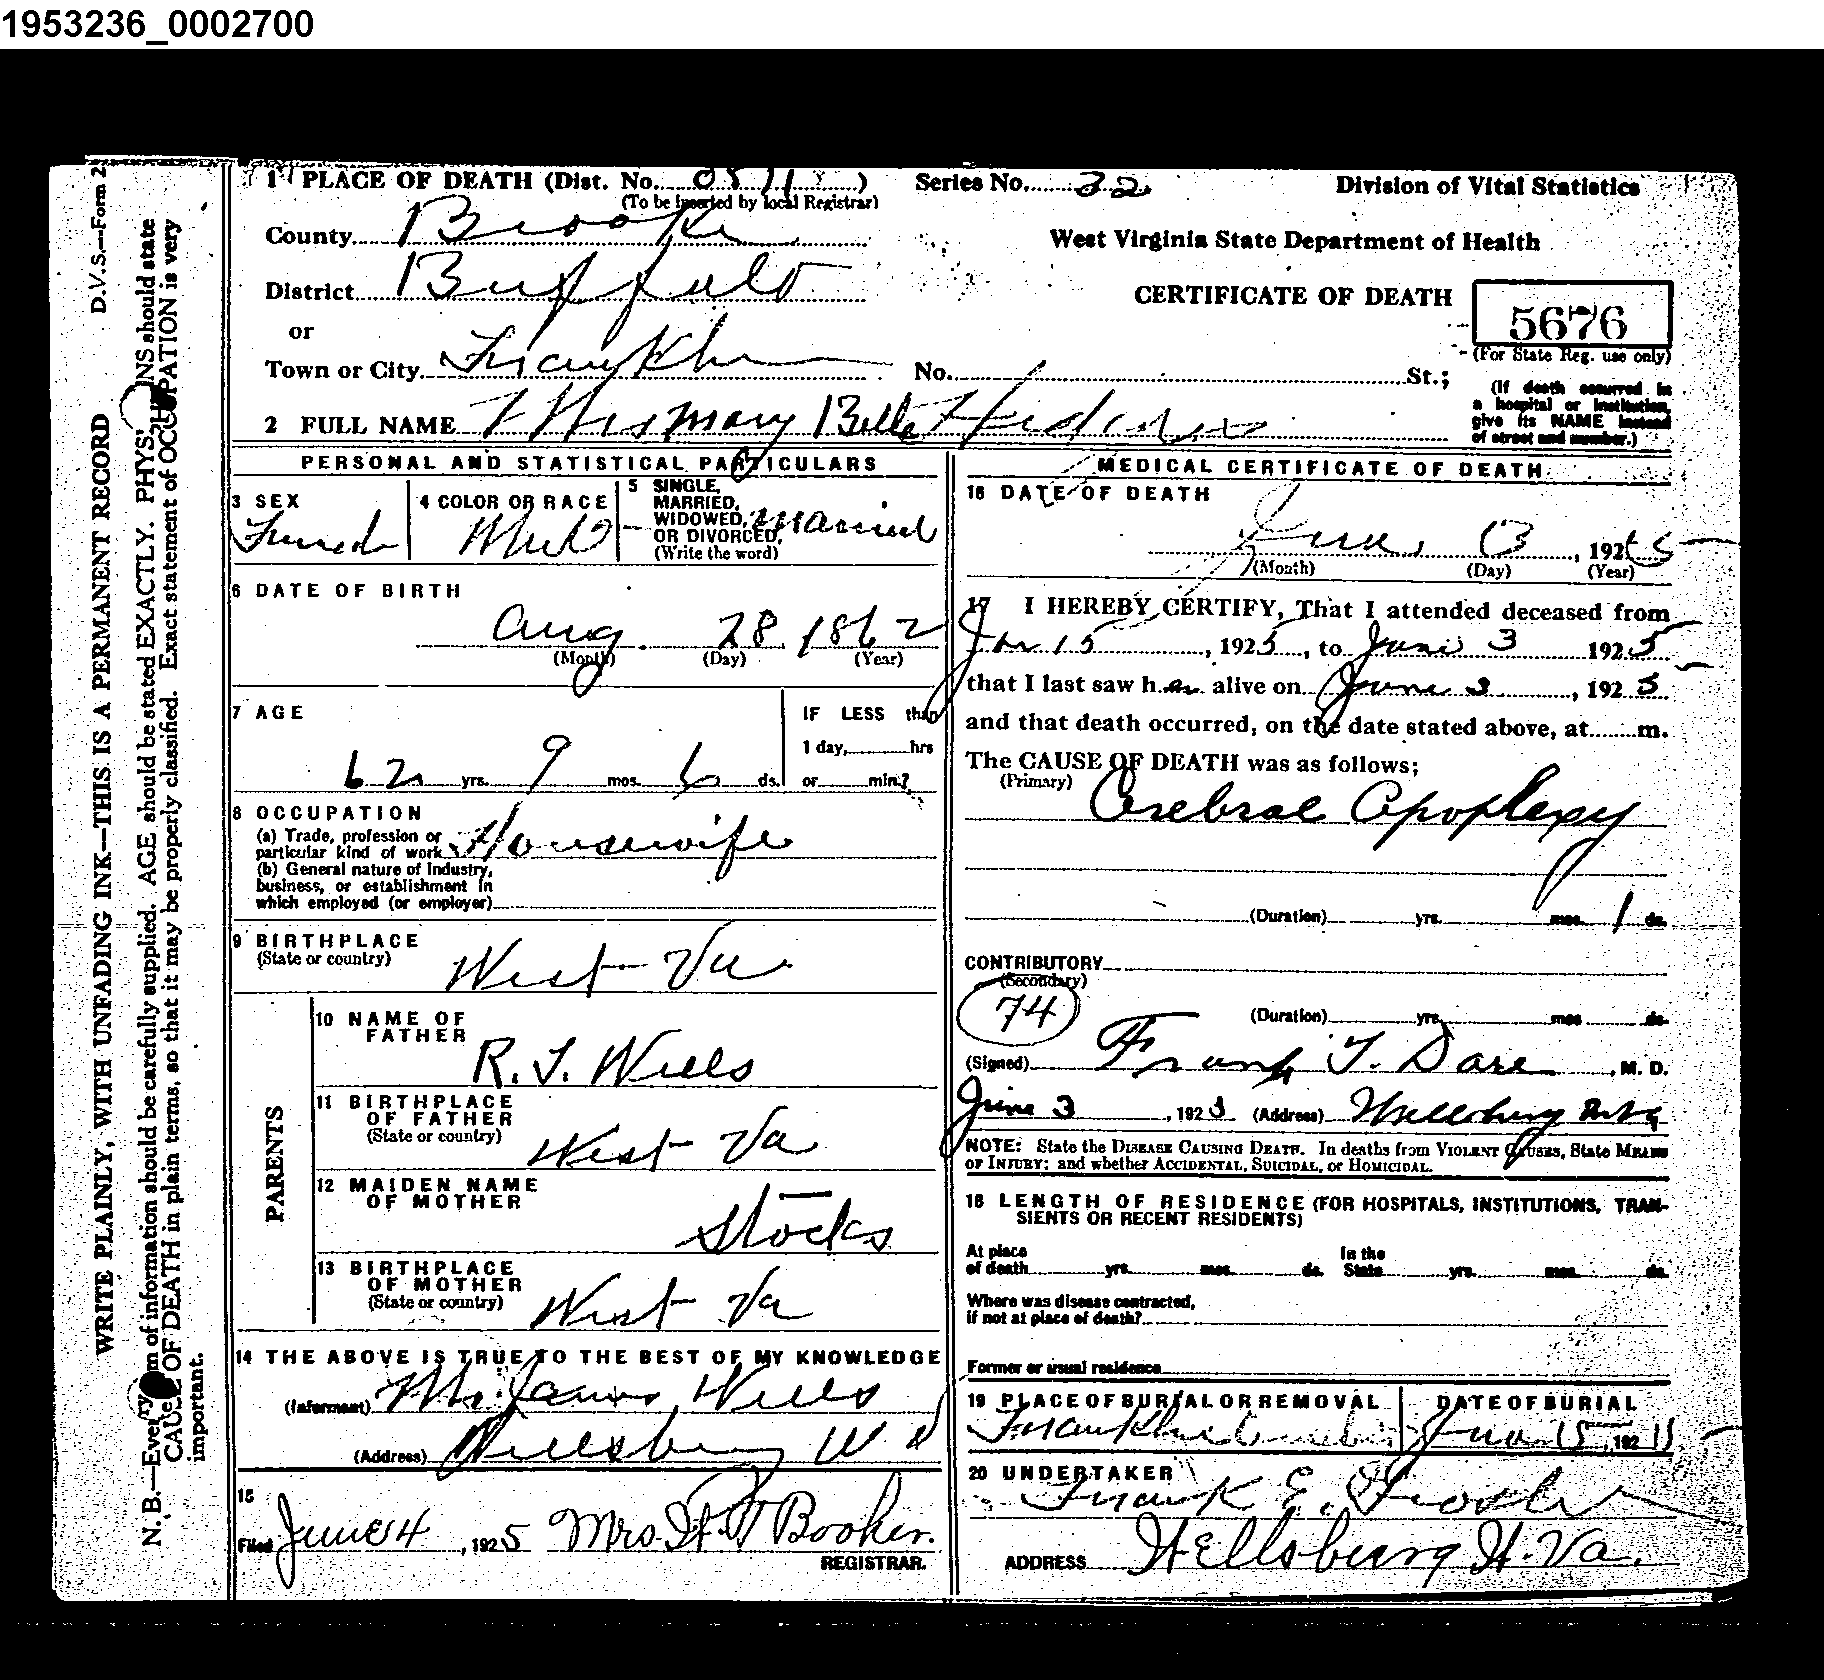 1953236_0002700
D.V.S.—Form 2
WRITE PLAINLY, WITH UNFADING INK—THIS IS A PERMANENT RECORD
N. B.—Every item of information should be carefully supplied. AGE should be stated EXACTLY. PHYSICIANS should state
CAUSE OF DEATH in plain terms, so that it may be properly classified. Exact statement of OCCUPATION is very
important.
1 PLACE OF DEATH (Dist. No. ) Series No. 32 Division of Vital Statistics
(To be inserted by local Registrar)
County Brooke
West Virginia State Department of Health
District Buffalo
CERTIFICATE OF DEATH 5676
or
(For State Reg. use only)
Town or City Franklin No. St.;
(If death occurred in
a hospital or institution,
give its NAME instead
of street and number.)
2 FULL NAME Mary Belle
PERSONAL AND STATISTICAL PARTICULARS
3 SEX 4 COLOR OR RACE 5 SINGLE,
MARRIED,
WIDOWED,
OR DIVORCED,
(Write the word)
Female White Married
6 DATE OF BIRTH
Aug. 28 1862
(Month) (Day) (Year)
7 AGE IF LESS than
1 day, hrs
62 yrs. 9 mos. 6 ds. or min.?
8 OCCUPATION
(a) Trade, profession or
particular kind of work Housewife
(b) General nature of Industry,
business, or establishment in
which employed (or employer)
9 BIRTHPLACE
(State or country) West Va
PARENTS
10 NAME OF
FATHER
R. T. Wells
11 BIRTHPLACE
OF FATHER
(State or country) West Va
12 MAIDEN NAME
OF MOTHER
Stocks
13 BIRTHPLACE
OF MOTHER
(State or country) West Va
14 THE ABOVE IS TRUE TO THE BEST OF MY KNOWLEDGE
(Informant) Mr. James Wells
(Address) Wellsburg W V
15
Filed June 4, 1925 Mrs. Booher.
REGISTRAR.
MEDICAL CERTIFICATE OF DEATH
16 DATE OF DEATH
June 3, 1925
(Month) (Day) (Year)
17 I HEREBY CERTIFY, That I attended deceased from
Jan 15, 1925, to June 3 1925
that I last saw her alive on June 3, 1925
and that death occurred, on the date stated above, at m.
The CAUSE OF DEATH was as follows;
(Primary)
Cerebral Apoplexy
(Duration) yrs. mos. 1 ds.
CONTRIBUTORY
(Secondary)
74
(Duration) yrs. mos. ds.
(Signed) Frank T. Dare, M. D.
June 3, 1925 (Address) Wellsburg
NOTE: State the DISEASE CAUSING DEATH. In deaths from VIOLENT CAUSES, State MEANS
OF INJURY; and whether ACCIDENTAL, SUICIDAL, or HOMICIDAL.
18 LENGTH OF RESIDENCE (FOR HOSPITALS, INSTITUTIONS, TRAN-
SIENTS OR RECENT RESIDENTS)
At place In the
of death yrs. mos. ds. State yrs. mos. ds.
Where was disease contracted,
if not at place of death?
Former or usual residence
19 PLACE OF BURIAL OR REMOVAL DATE OF BURIAL
June 5, 192
20 UNDERTAKER
Frank E.
ADDRESS Wellsburg W. Va.